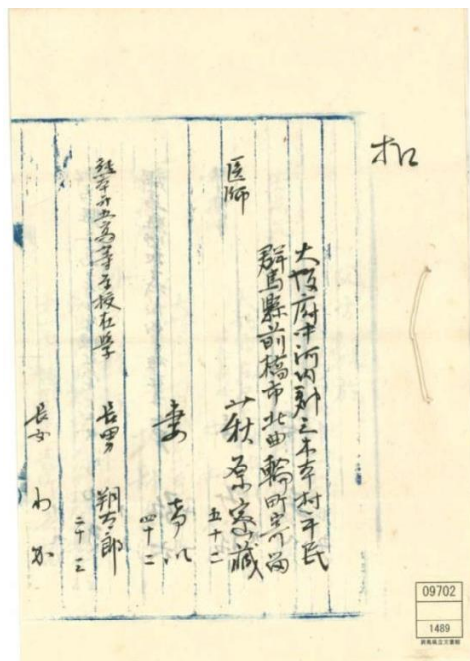 扣
大阪府中河内郡三木本村平民
群馬縣前橋市北曲輪町寄留
医師
萩原密蔵
五十二
妻
四十二
熊本第五高等学校在学
長男 朔太郎
二十三
長女 わか
09702
1489
群馬県立文書館